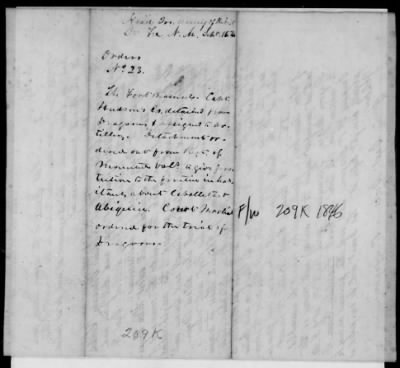 Head Qrs. Army of the West
Sa. Fe N. M. Sept. 18
Orders
No. 23.
The Fort named. Capt.
Hudson's Co. detailed from
Dragoons & assigned to Ar-
tillery. Detachment or-
dered out from Regt. of
Mounted Vols. to give pro-
tection to the frontier inhab-
itants about Cebolleta &
Abiquiu. Court Martial
ordered for the trial of
Dragoons.
F/W 209K 1846
209K